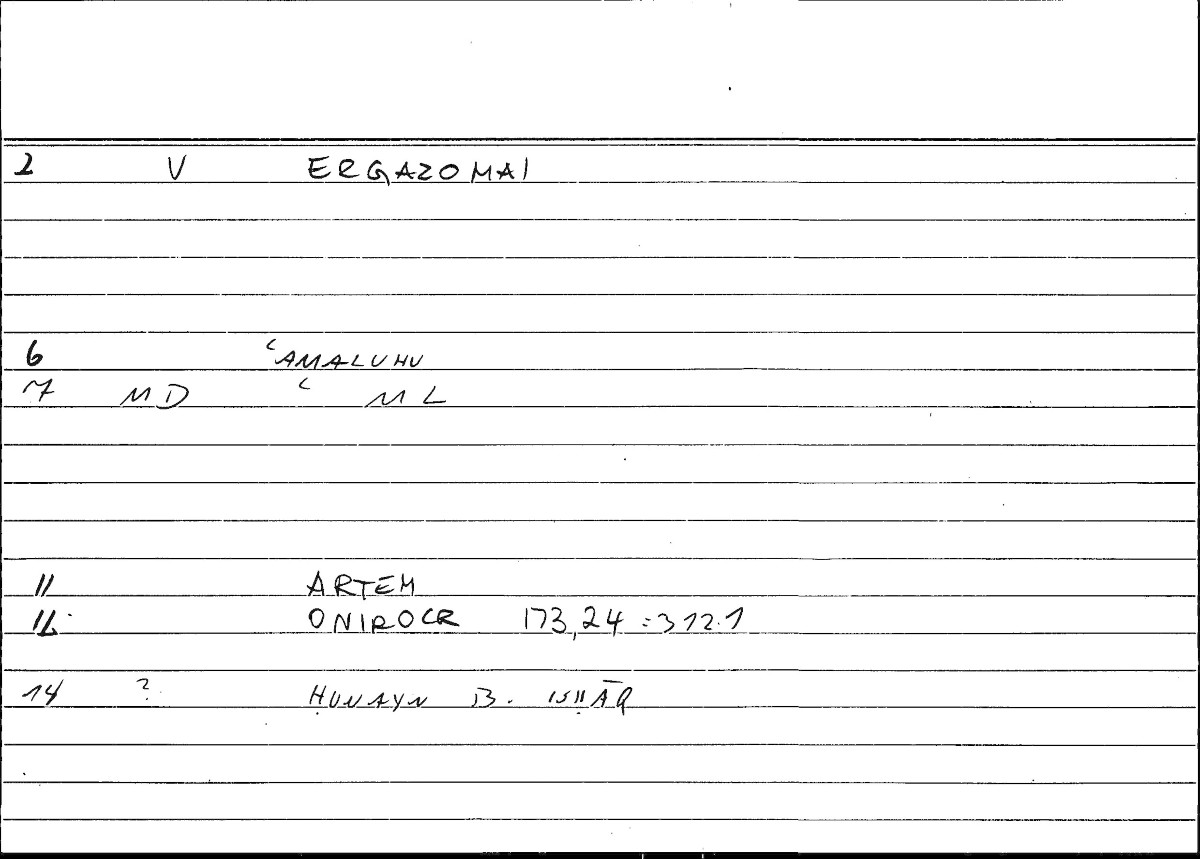 2 V ERGAZOMAI
6 ʿAMALUHU
7 MD ʿ ML
11 ARTEM
12 ONIROCR 173,24 =312.1
14 ? ḤUNAYN B. ISḤĀQ